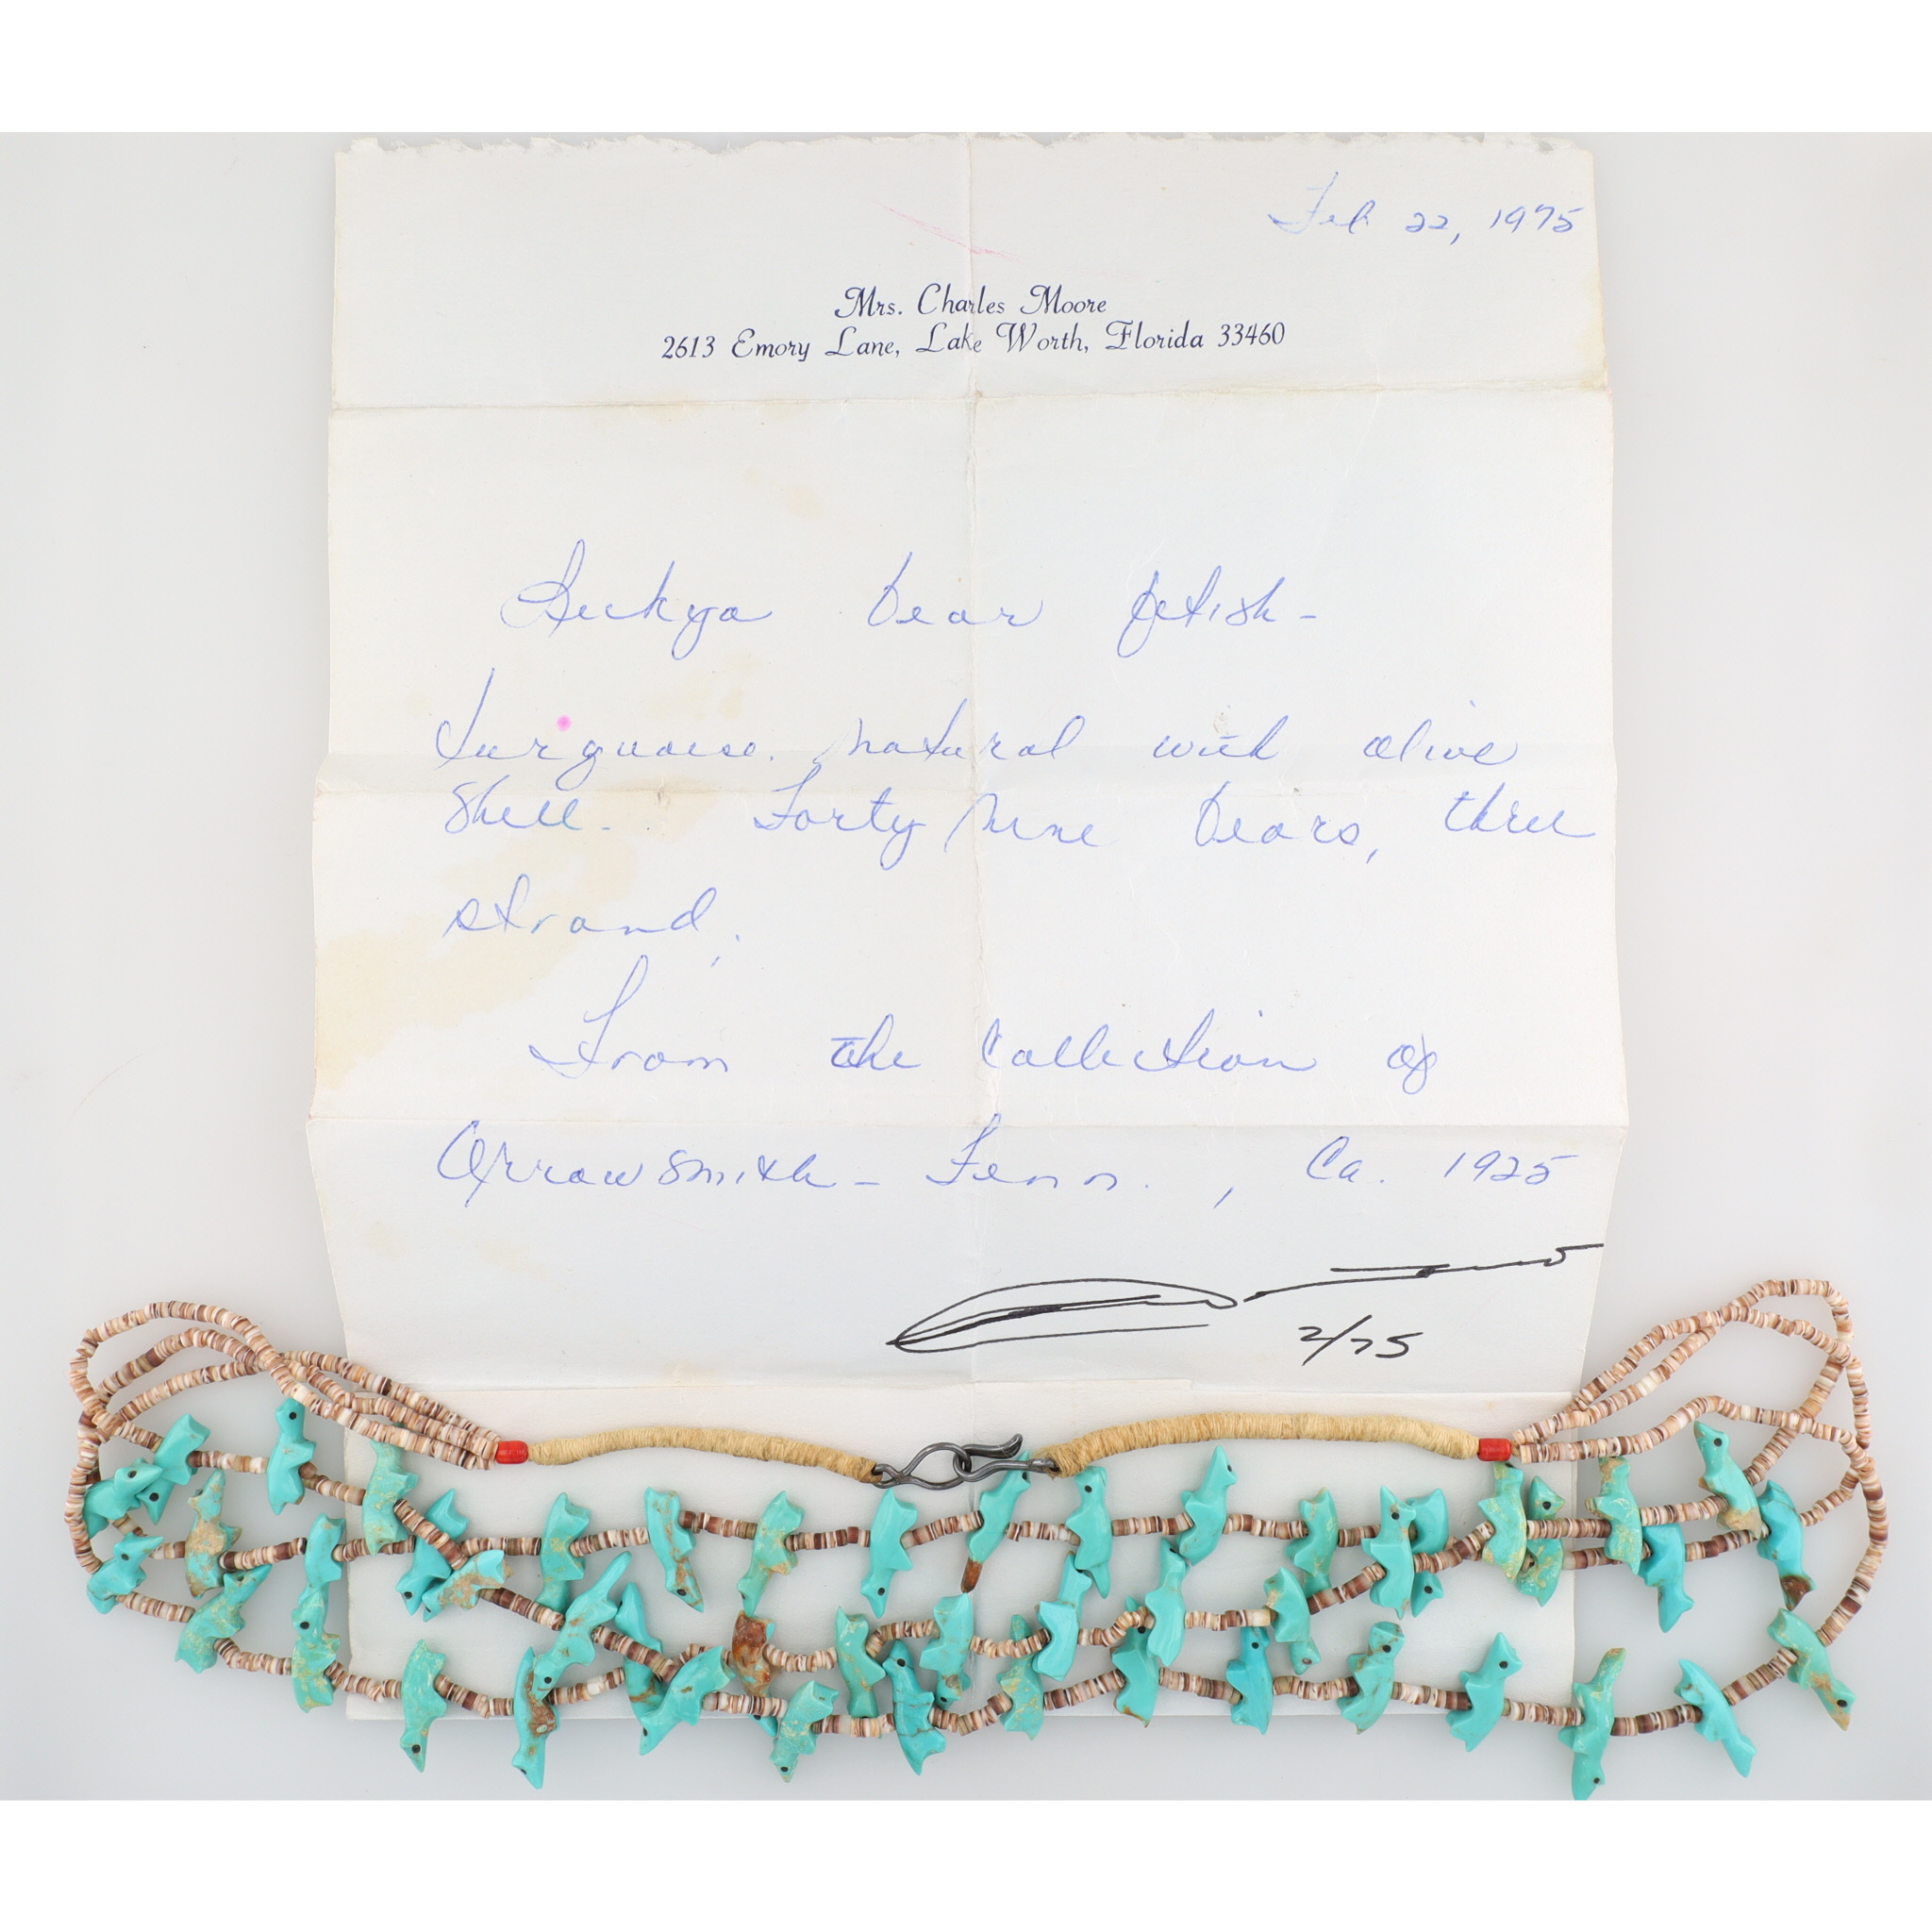 Feb 22, 1975
Mrs. Charles Moore
2613 Emory Lane, Lake Worth, Florida 33460
Leekya bear fetish-
turquoise. natural with olive
shell. Forty nine bears, three
strand.
From the Collection of
Arrowsmith - Fenn., Ca. 1925
2/75